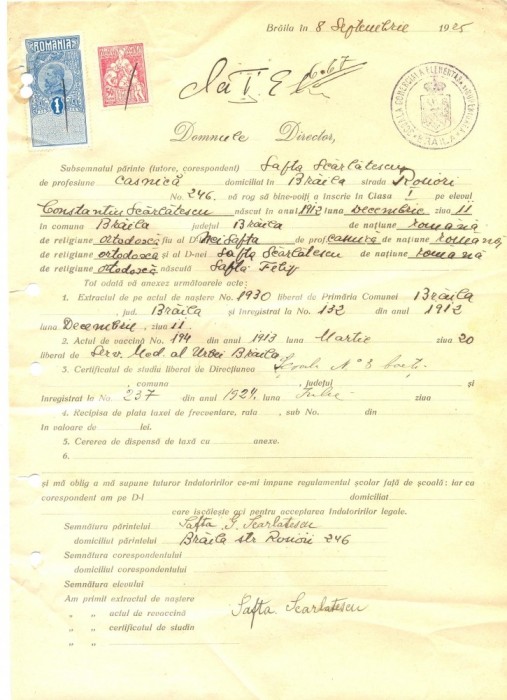 Brăila în 8 Septembrie 1925
ROMÂNIA
1
la I E
Domnule Director,
Subsemnatul părinte (tutore, corespondent) Safta Scărlătescu
de profesiune casnică domiciliat în Brăila strada Roșiori
No. 246. vă rog să bine-voiți a înscrie în Clasa I pe elevul
Constantin Scărlătescu născut în anul 1912 luna Decembrie ziua 11
în comuna Brăila județul Brăila de națiune română
de religiune ortodoxă fiu al D-nei Safta de prof. casnica de națiune română,
de religiune ortodoxă și al D-nei Safta Scărlătescu de națiune română
de religiune ortodoxă născută Safta Felix
Tot odată vă anexez următoarele acte:
1. Extractul de pe actul de naștere No. 1930 liberat de Primăria Comunei Brăila
, jud. Brăila și înregistrat la No. 132 din anul 1912
luna Decembrie ziua 11.
2. Actul de vaccină No. 194 din anul 1913 luna Martie ziua 20
liberat de Serv. Med. al Urbei Brăila
3. Certificatul de studiu liberat de Direcțiunea Școala No 3 băeți
, comuna , județul și
înregistrat la No. 237 din anul 1924 luna Iulie ziua
4. Recipisa de plata taxei de frecventare, rata , sub No. din
în valoare de lei.
5. Cererea de dispensă de taxă cu anexe.
6.
și mă oblig a mă supune tuturor îndatoririlor ce-mi impune regulamentul școlar față de școală: iar ca
corespondent am pe D-l domiciliat
care iscălește aci pentru acceptarea îndatoririlor legale.
Semnătura părintelui Safta G. Scarlatescu
domiciliul părintelui Brăila str Roșiori 246
Semnătura corespondentului
domiciliul corespondentului
Semnătura elevului
Am primit extractul de naștere Safta Scarlatescu
„ „ actul de revaccină
„ „ certificatul de studiu